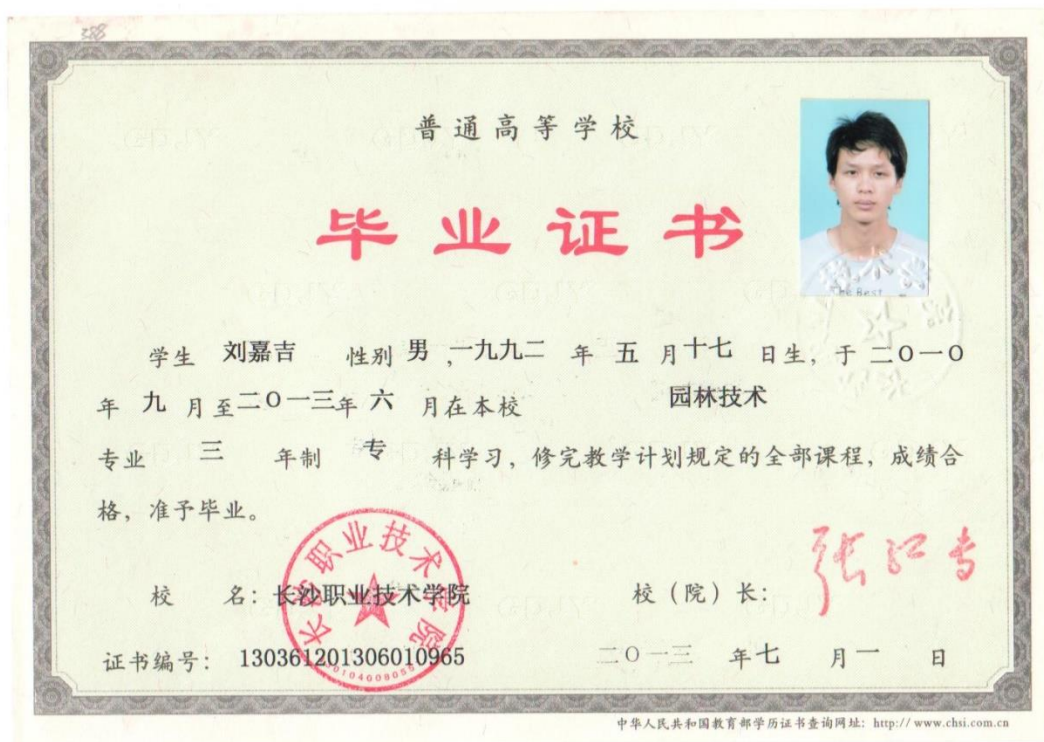 388
普通高等学校
毕业证书
The Best
学生 刘嘉吉 性别 男 ,一九九二 年 五 月 十七 日生, 于 二〇一〇
年 九 月至 二〇一三 年 六 月在本校 园林技术
专业 三 年制 专 科学习, 修完教学计划规定的全部课程, 成绩合
格, 准予毕业。
长沙职业技术学院
校 名: 长沙职业技术学院 校(院)长:
证书编号: 130361201306010965 二〇一三 年 七 月 一 日
中华人民共和国教育部学历证书查询网址: http://www.chsi.com.cn